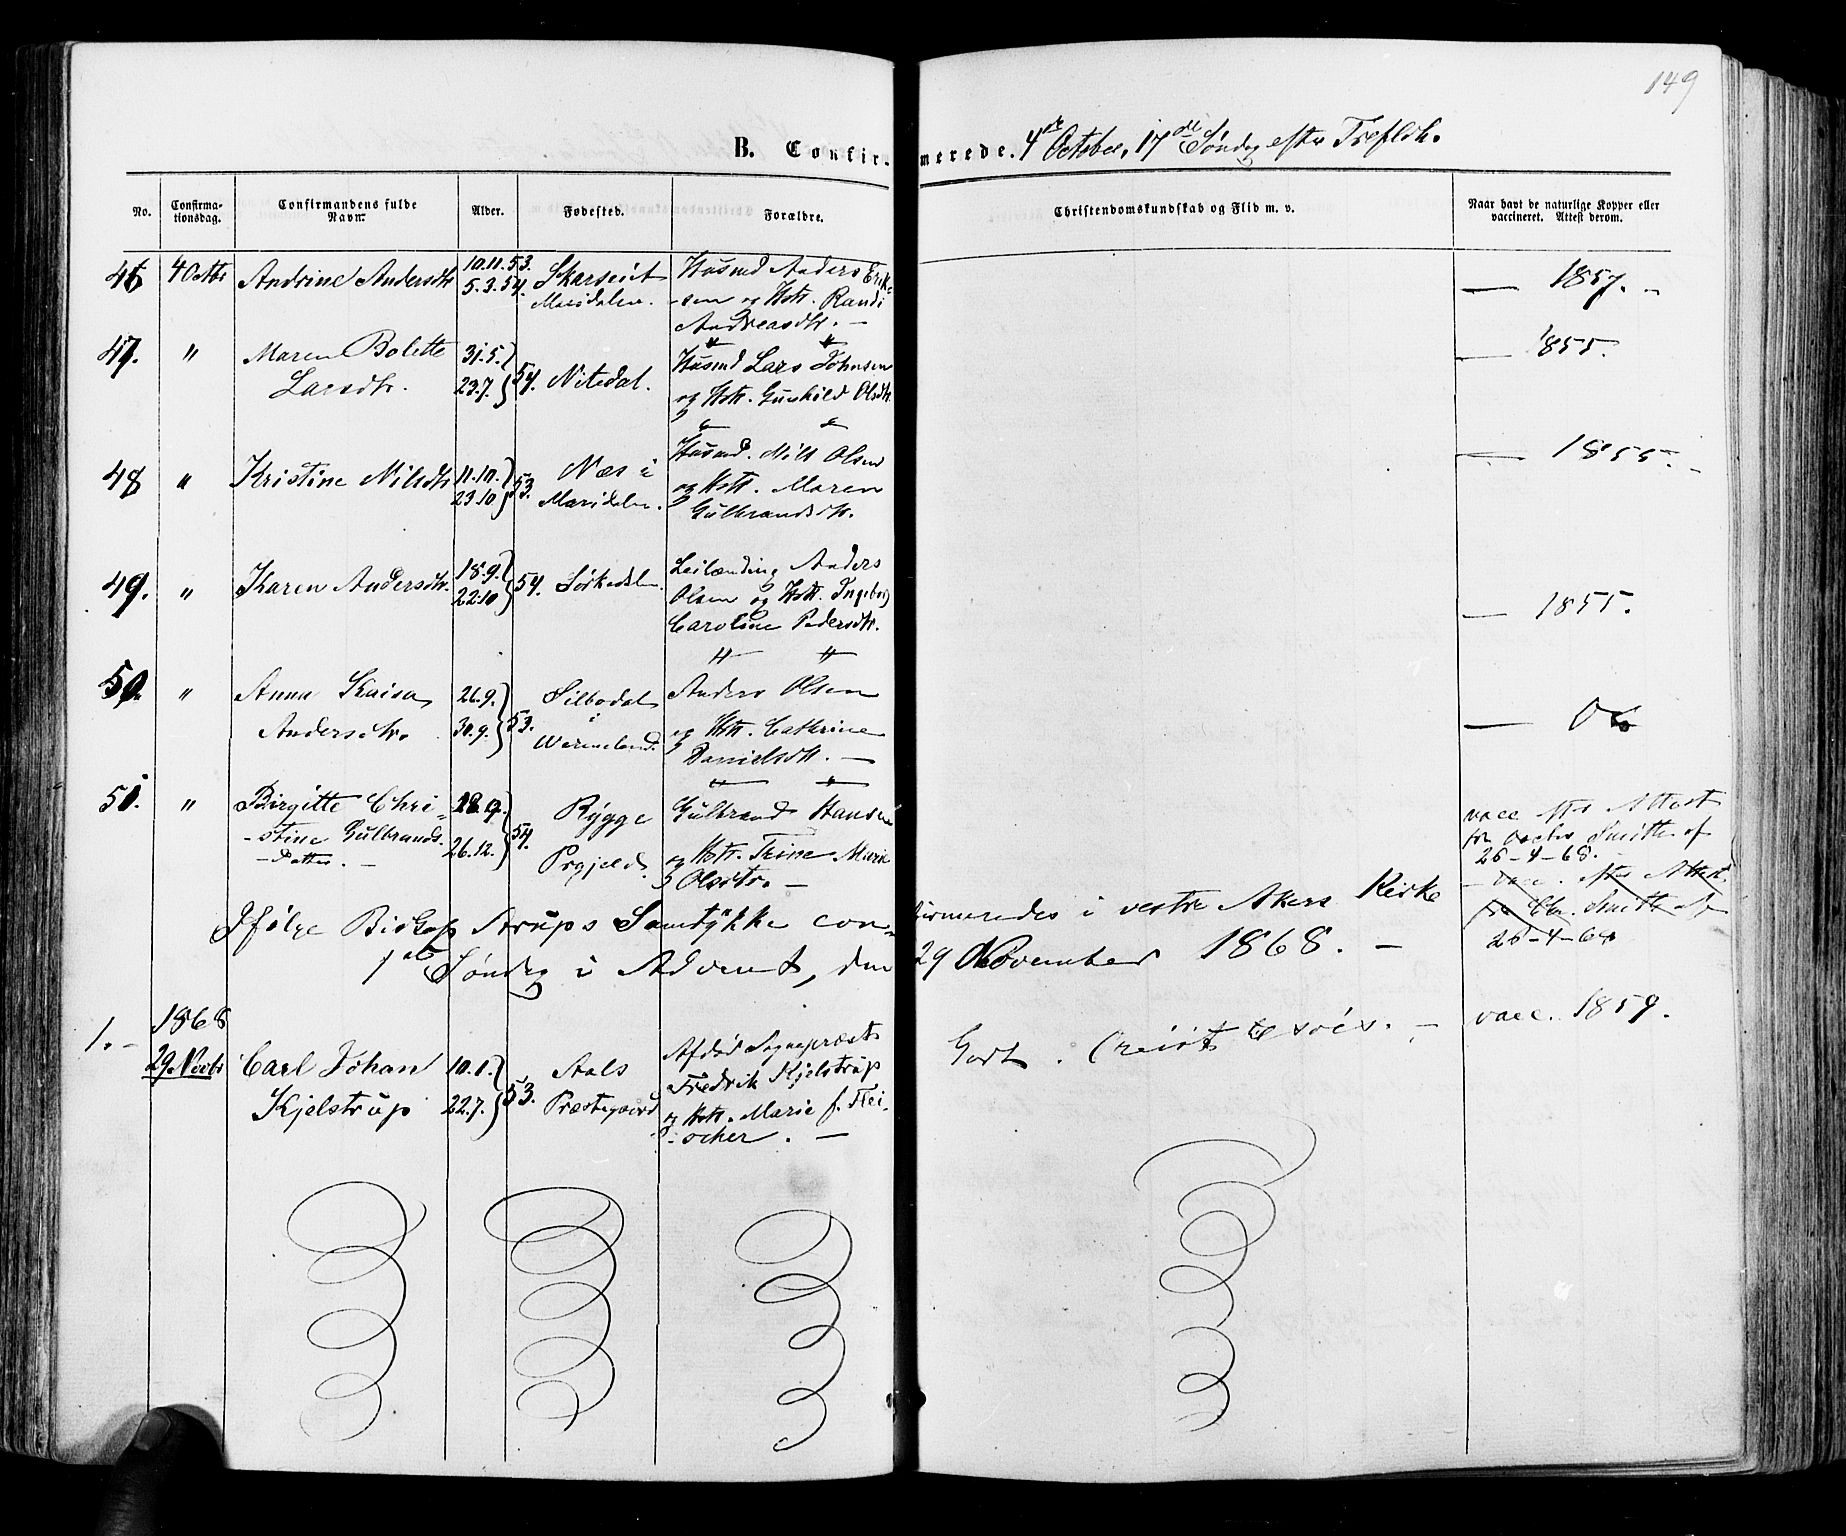 149
B. Confirmerede. 4de October, 17de Søndag efter Trefldh.
No. Confirmationsdag. Confirmandens fulde Navn. Alder. Fødested. Forældre. Christendomskundskab og Flid m. v. Naar havt de naturlige Kopper eller vaccineret. Attest derom.
46 4 Octbr Andrine Andersdtr 10.11.53. 5.3.54. Maridalen.
Husmd Anders Erik-
sen og Hstr. Randi
Andreasdtr. —
— 1857. —
47. " Maren Bolette
Larsdtr. 31.5. 23.7. 54. Nitedal.
Husmd Lars Johnsen
og Hstr. Gunhild Olsdtr.
— 1855.
48 " Kristine Nilsdtr 11.10. 23.10 53. Næs i
Maridalen.
Husmd. Nils Olsen
og Hstr. Maren
Gulbrandsdtr.
— 1855. -
49. " Karen Andersdtr. 18.9. 22.10 54. Sørkedalen
Leilænding Anders
Olsen og Hstr. Ingeborg
Caroline Pedersdtr.
— 1855.
50. " Anna Kaisa
Andersdtr. 26.9. 30.9. 53. Silbodal
i
Wermeland.
Anders Olsen
og Hstr. Cathrine
Danielsdtr. —
51. " Birgitte Chri-
-stine Gulbrands-
-datter. — 26.12. 54. Rygge
Prgjeld.
Gulbrand Hansen
og Hstr. Trine Marie
Olsdtr. —
vacc. eftr Attest
fra Smith af
26-4-68.
- vacc. eftr Attest
fra Chr. Smith af
26-4-68
Ifølge Biskop Arups Samtykke confirmeredes i vestre Akers Kirke
1ste Søndag i Advent, den 29 November 1868. —
1. - 1868
29 Novbr Carl Johan
Kjelstrup 10.1. 22.7. 53. Aals
Præstegaard
Afdød Sognepræst
Fredrik Kjelstrup
og Hstr. Marie f. Flei-
scher. —
Godt.
vacc. 1859.